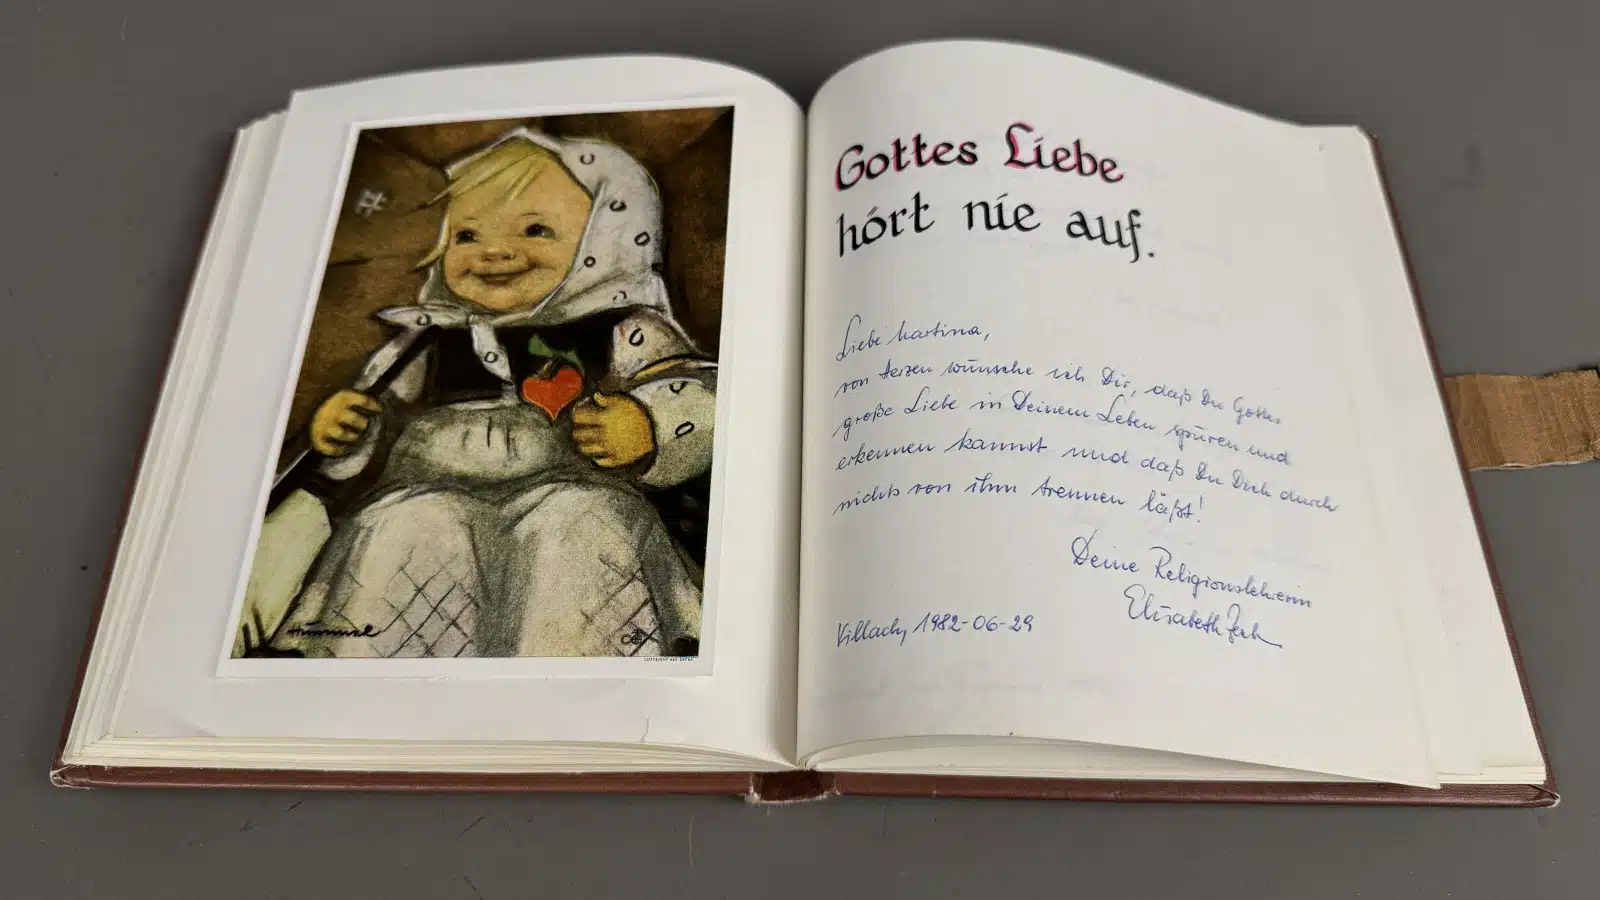 Hummel
Gottes Liebe
hört nie auf.
Liebe Martina,
von Herzen wünsche ich Dir, daß Du Gottes
große Liebe in Deinem Leben spüren und
erkennen kannst und daß Du Dich durch
nichts von ihm trennen läßt!
Deine Religionslehrerin
Elisabeth
Villach, 1982-06-29